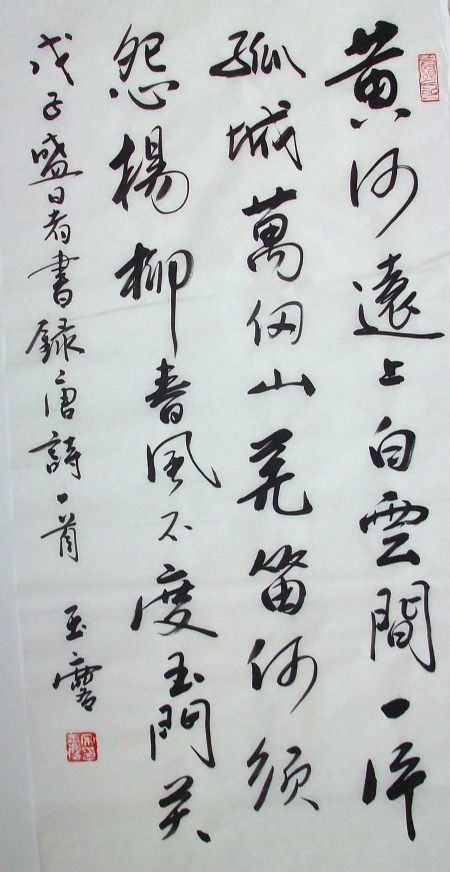 黄河遠上白雲間一片
孤城萬仞山羌笛何須
怨楊柳春風不度玉門关
戊子盛暑書録唐詩一首